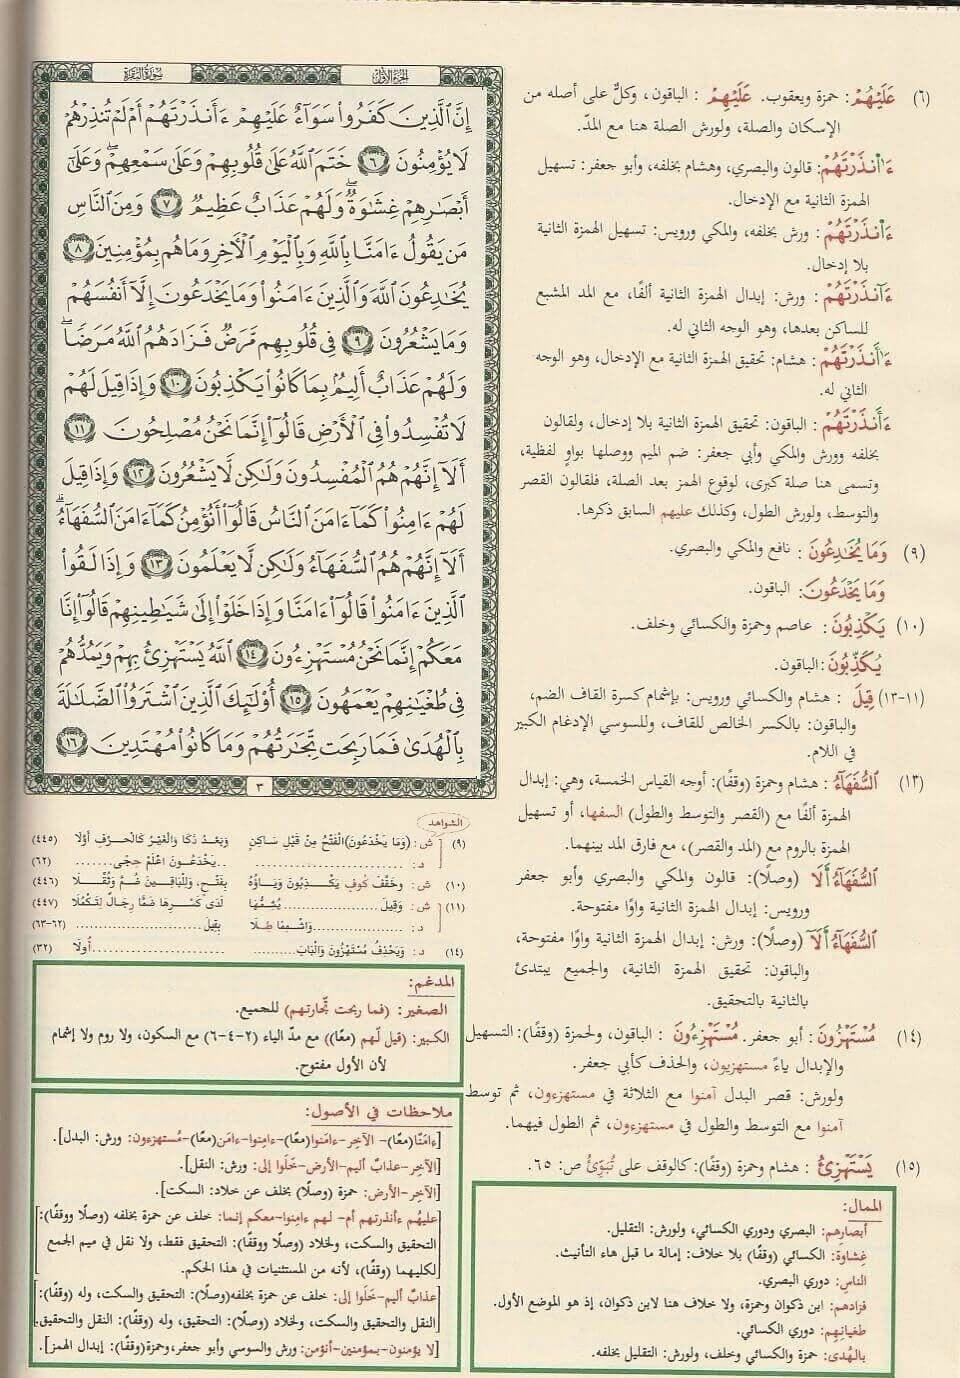 الجزء الأول
سورة البقرة
إِنَّ ٱلَّذِينَ كَفَرُواْ سَوَآءٌ عَلَيْهِمْ ءَأَنذَرْتَهُمْ أَمْ لَمْ تُنذِرْهُمْ
لَا يُؤْمِنُونَ ٦ خَتَمَ ٱللَّهُ عَلَىٰ قُلُوبِهِمْ وَعَلَىٰ سَمْعِهِمْ ۖ وَعَلَىٰٓ
أَبْصَٰرِهِمْ غِشَٰوَةٌ ۖ وَلَهُمْ عَذَابٌ عَظِيمٌ ٧ وَمِنَ ٱلنَّاسِ
مَن يَقُولُ ءَامَنَّا بِٱللَّهِ وَبِٱلْيَوْمِ ٱلْءَاخِرِ وَمَا هُم بِمُؤْمِنِينَ ٨
يُخَٰدِعُونَ ٱللَّهَ وَٱلَّذِينَ ءَامَنُواْ وَمَا يَخْدَعُونَ إِلَّآ أَنفُسَهُمْ
وَمَا يَشْعُرُونَ ٩ فِى قُلُوبِهِم مَّرَضٌ فَزَادَهُمُ ٱللَّهُ مَرَضًا ۖ
وَلَهُمْ عَذَابٌ أَلِيمٌۢ بِمَا كَانُواْ يَكْذِبُونَ ١٠ وَإِذَا قِيلَ لَهُمْ
لَا تُفْسِدُواْ فِى ٱلْأَرْضِ قَالُوٓاْ إِنَّمَا نَحْنُ مُصْلِحُونَ ١١
أَلَآ إِنَّهُمْ هُمُ ٱلْمُفْسِدُونَ وَلَٰكِن لَّا يَشْعُرُونَ ١٢ وَإِذَا قِيلَ
لَهُمْ ءَامِنُواْ كَمَآ ءَامَنَ ٱلنَّاسُ قَالُوٓاْ أَنُؤْمِنُ كَمَآ ءَامَنَ ٱلسُّفَهَآءُ ۗ
أَلَآ إِنَّهُمْ هُمُ ٱلسُّفَهَآءُ وَلَٰكِن لَّا يَعْلَمُونَ ١٣ وَإِذَا لَقُواْ
ٱلَّذِينَ ءَامَنُواْ قَالُوٓاْ ءَامَنَّا وَإِذَا خَلَوْاْ إِلَىٰ شَيَٰطِينِهِمْ قَالُوٓاْ إِنَّا
مَعَكُمْ إِنَّمَا نَحْنُ مُسْتَهْزِءُونَ ١٤ ٱللَّهُ يَسْتَهْزِئُ بِهِمْ وَيَمُدُّهُمْ
فِى طُغْيَٰنِهِمْ يَعْمَهُونَ ١٥ أُوْلَٰٓئِكَ ٱلَّذِينَ ٱشْتَرَوُاْ ٱلضَّلَٰلَةَ
بِٱلْهُدَىٰ فَمَا رَبِحَت تِّجَٰرَتُهُمْ وَمَا كَانُواْ مُهْتَدِينَ ١٦
٣
(٦) عَلَيْهُمْ: حمزة ويعقوب. عَلَيْهِمْ: الباقون، وكلٌّ على أصله من
الإسكان والصلة، ولورش الصلة هنا مع المدّ.
ءَاْنذَرْتَهُمْ: قالون والبصري، وهشام بخلفه، وأبو جعفر: تسهيل
الهمزة الثانية مع الإدخال.
ءَانذَرْتَهُمْ: ورش بخلفه، والمكي ورويس: تسهيل الهمزة الثانية
بلا إدخال.
ءَآنذَرْتَهُمْ: ورش: إبدال الهمزة الثانية ألفًا، مع المد المشبع
للساكن بعدها، وهو الوجه الثاني له.
ءَاأَنذَرْتَهُمْ: هشام: تحقيق الهمزة الثانية مع الإدخال، وهو الوجه
الثاني له.
ءَأَنذَرْتَهُمْ: الباقون: تحقيق الهمزة الثانية بلا إدخال، ولقالون
بخلفه وورش والمكي وأبي جعفر: ضم الميم ووصلها بواوٍ لفظية،
وتسمى هنا صلة كبرى، لوقوع الهمز بعد الصلة، فلقالون القصر
والتوسط، ولورش الطول، وكذلك عليهم السابق ذكرها.
(٩) وَمَا يُخَٰدِعُونَ: نافع والمكي والبصري.
وَمَا يَخْدَعُونَ: الباقون.
(١٠) يَكْذِبُونَ: عاصم وحمزة والكسائي وخلف.
يُكَذِّبُونَ: الباقون.
(١١-١٣) قِيلَ: هشام والكسائي ورويس: بإشمام كسرة القاف الضم،
والباقون: بالكسر الخالص للقاف، وللسوسي الإدغام الكبير
في اللام.
(١٣) ٱلسُّفَهَآءُ: هشام وحمزة (وقفًا): أوجه القياس الخمسة، وهي: إبدال
الهمزة ألفًا مع (القصر والتوسط والطول) السفها، أو تسهيل
الهمزة بالروم مع (المد والقصر)، مع فارق المد بينهما.
ٱلسُّفَهَآءُ أَلَا (وصلًا): قالون والمكي والبصري وأبو جعفر
ورويس: إبدال الهمزة الثانية واوًا مفتوحة.
ٱلسُّفَهَآءُ أَلَآ (وصلًا): ورش: إبدال الهمزة الثانية واوًا مفتوحة،
والباقون: تحقيق الهمزة الثانية، والجميع يبتدئ
بالثانية بالتحقيق.
(١٤) مُسْتَهْزُونَ: أبو جعفر. مُسْتَهْزِءُونَ: الباقون، ولحمزة (وقفًا): التسهيل
والإبدال ياءً مستهزيون، والحذف كأبي جعفر.
ولورش: قصر البدل آمنوا مع الثلاثة في مستهزءون، ثم توسط
آمنوا مع التوسط والطول في مستهزءون، ثم الطول فيهما.
(١٥) يَسْتَهْزِئُ: هشام وحمزة (وقفًا): كالوقف على تُبَوِّئُ ص: ٦٥.
الممال:
أبصارهم: البصري ودوري الكسائي، ولورش: التقليل.
غشاوة: الكسائي (وقفًا) بلا خلاف: إمالة ما قبل هاء التأنيث.
الناس: دوري البصري.
فزادهم: ابن ذكوان وحمزة، ولا خلاف هنا لابن ذكوان، إذ هو الموضع الأول.
طغيانهم: دوري الكسائي.
بالهدى: حمزة والكسائي وخلف، ولورش: التقليل بخلفه.
الشواهد
(٩) ش: (وَمَا يَخْدَعُونَ) الْفَتْحُ مِنْ قَبْلِ سَاكِنٍ وَبَعْدُ ذَكَا وَالْغَيْرُ كَالْحَرْفِ أَوَّلَا (٤٤٥)
د: .......... يَخْدَعُونَ اعْلَمْ حِجًى .......... (٦٢)
(١٠) ش: وَخَفَّفَ كُوفٍ يَكْذِبُونَ وَيَاؤُهُ بِفَتْحٍ، وَلِلْبَاقِينَ ضُمَّ وَثُقِّلَا (٤٤٦)
(١١) ش: وَقِيلَ .......... يُشِمُّهَا لَدَى كَسْرِهَا ضَمًّا رِجَالٌ لِتَكْمُلَا (٤٤٧)
د: .......... وَاشْمِمًا طِلَا بِقِيلَ .......... (٦٢-٦٣)
(١٤) د: وَيَحْذِفُ مُسْتَهْزُونَ وَالْبَابَ .......... أُولَا (٣٢)
المدغم:
الصغير: (فما ربحت تّجارتهم) للجميع.
الكبير: (قيل لّهم (معًا)) مع مدّ الياء (٢-٤-٦) مع السكون، ولا روم ولا إشمام
لأن الأول مفتوح.
ملاحظات في الأصول:
[ءامنّا(معًا)- الآخِر-ءامنوا(معًا)-ءامِنوا-ءامَن(معًا)-مُستهزءون: ورش: البدل].
[الآخِر-عذابٌ أليم-الأرض-خَلَوا إلى: ورش: النقل].
[الآخِر-الأرض: حمزة (وصلًا) بخلف عن خلاد: السكت].
[عليهُم ءأنذرتهم أم- لهم ءامِنوا-معكم إنما: خلف عن حمزة بخلفه (وصلًا ووقفًا):
التحقيق والسكت، ولخلاد (وصلًا ووقفًا): التحقيق فقط، ولا نقل في ميم الجمع
لكليهما (وقفًا)، لأنه من المستثنيات في هذا الحكم.
[عذابٌ أليم-خَلَوا إلى: خلف عن حمزة بخلفه(وصلًا): التحقيق والسكت، وله (وقفًا):
النقل والتحقيق والسكت، ولخلاد (وصلًا): التحقيق، وله (وقفًا): النقل والتحقيق.
[لا يؤمنون-بمؤمنين-أنؤمن: ورش والسوسي وأبو جعفر،وحمزة(وقفًا): إبدال الهمز].